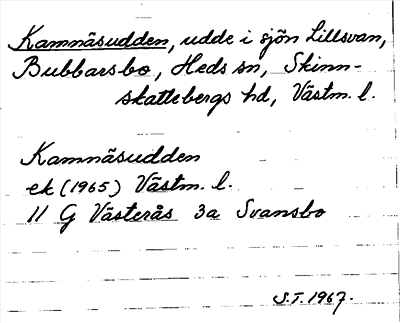 Kamnäsudden, udde i sjön Lillsvan,
Bubbarsbo, Heds sn, Skinn-
skattebergs hd, Västm. l.
Kamnäsudden
ek (1965) Västm. l.
11 G Västerås 3a Svansbo
S.T. 1967.